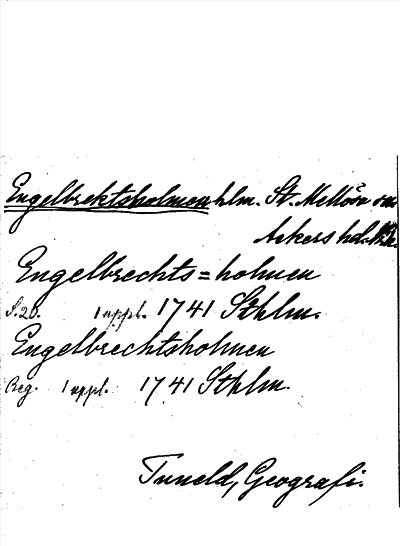 Engelbrektsholmen hlm. St. Mellösa sn
Askers hd. Nke.
Engelbrechts=holmen
S.20. 1 uppl. 1741 Sthlm.
Engelbrechtsholmen
Reg. 1 uppl. 1741 Sthlm.
Tuneld, Geografi.